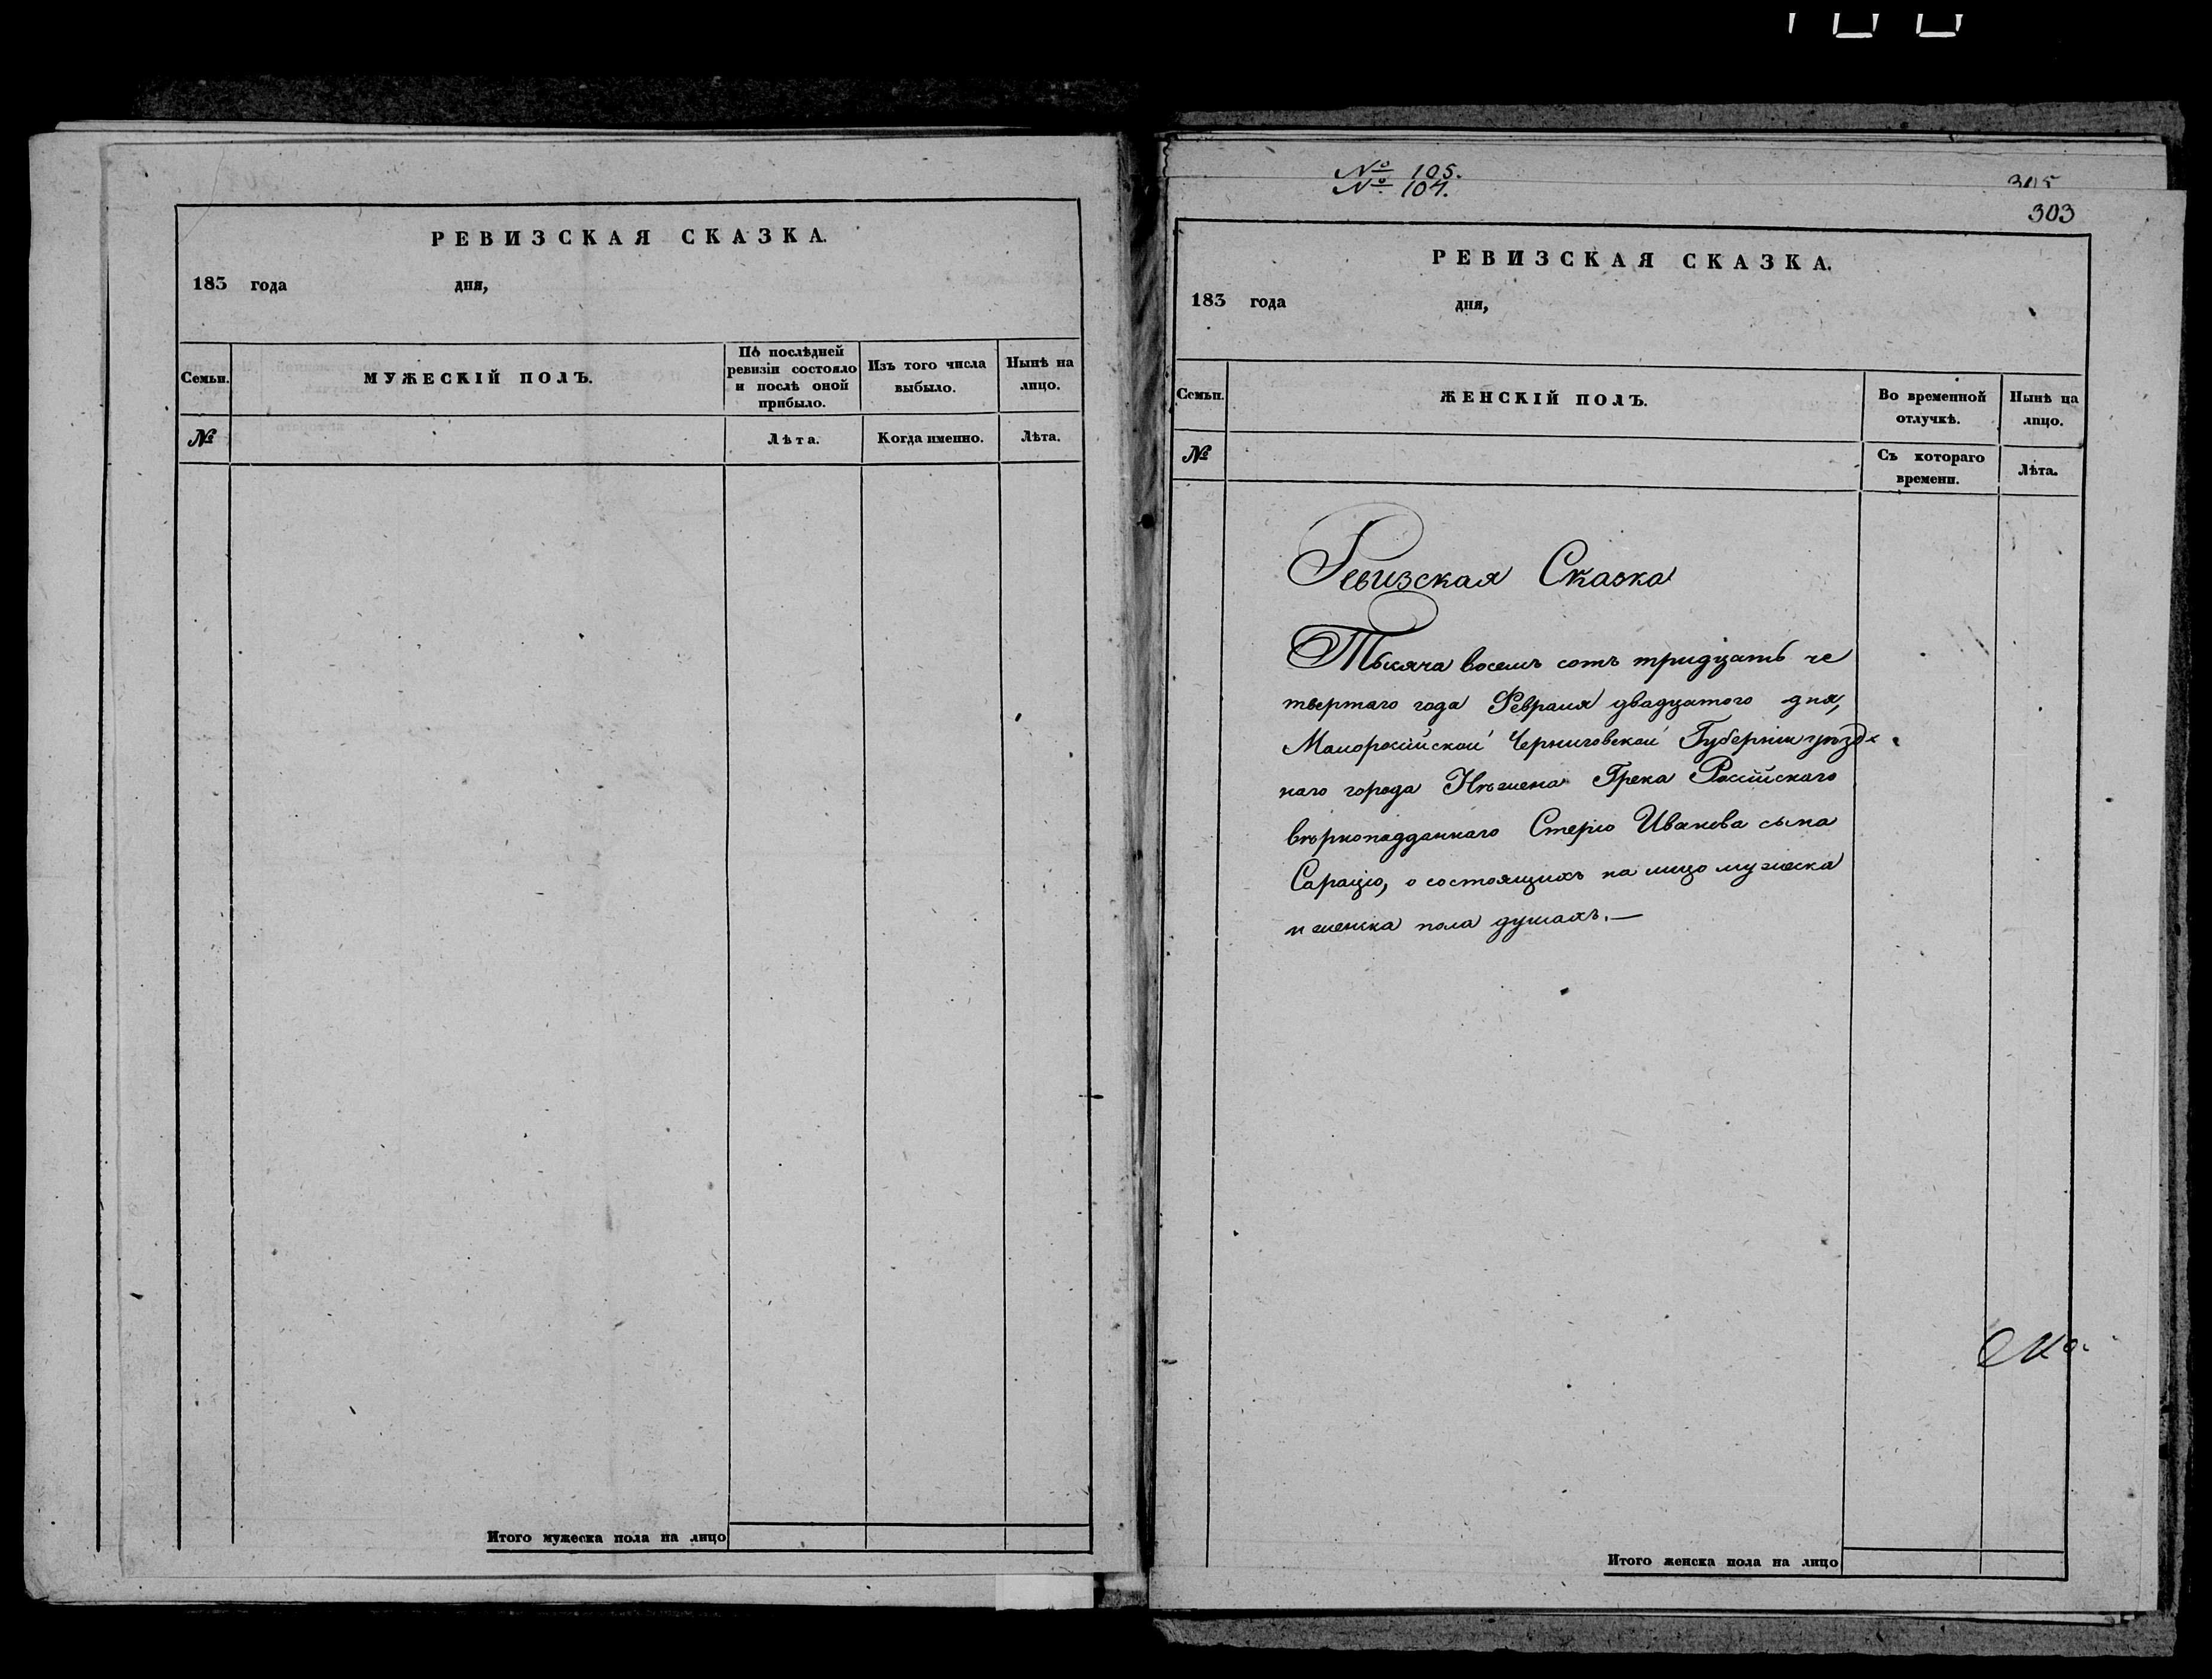 РЕВИЗСКАЯ СКАЗКА.
183 года дня,
Семьи.
МУЖЕСКІЙ ПОЛЪ.
По послѣдней
ревизіи состояло
и послѣ оной
прибыло.
Изъ того числа
выбыло.
Нынѣ на
лицо.
№
Лѣта.
Когда именно.
Лѣта.
Итого мужеска пола на лицо
№ 105.
№ 104.
305
303
РЕВИЗСКАЯ СКАЗКА.
183 года дня,
Семьи.
ЖЕНСКІЙ ПОЛЪ.
Во временной
отлучкѣ.
Нынѣ на
лицо.
№
Съ котораго
времени.
Лѣта.
Ревизская Сказка
Тысяча восемъ сотъ тридцать че
твертаго года Февраля двадцатого дня,
Малоросійской Черниговской Губерніи уѣзд
наго города Нѣжена Грека Російскаго
вѣрноподданнаго Стеріо Иванова сына
Сараціо, о состоящихъ на лицо мужеска
и женска пола душахъ.—
Итого женска пола на лицо